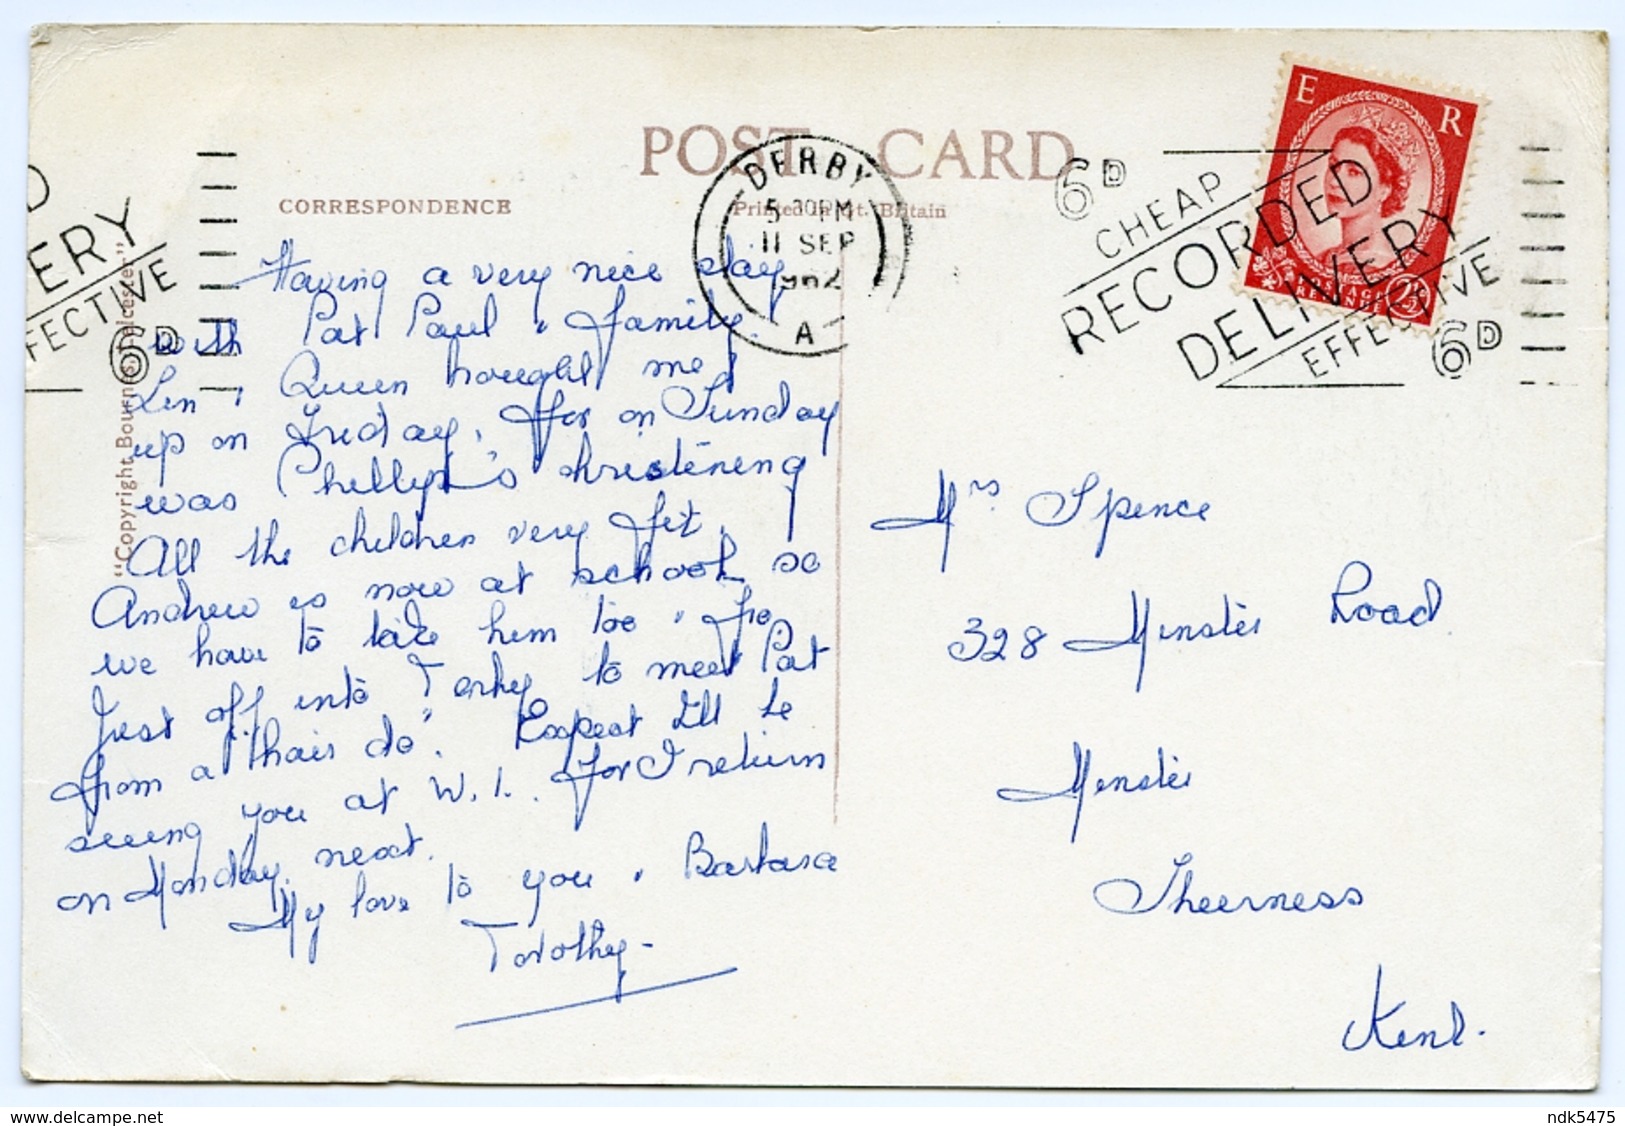 POST CARD
CORRESPONDENCE
Printed in Gt. Britain
"Copyright Bourne, Leicester"
DERBY
5.30PM
11 SEP
1962
A
6D
CHEAP
RECORDED
DELIVERY
EFFECTIVE
6D
D
ERY
FECTIVE
6D
E R
POSTAGE
REVENUE
2½
Having a very nice stay
with Pat Paul & family.
Len & Queen brought me
up on Friday, for on Sunday
was Phillip's christening
All the children very fit.
Andrew is now at school so
we have to take him to & fro.
Just off into to meet Pat
from a "hair do". Expect I'll be
seeing you at W.I. for I return
on Monday next.
My love to you & Barbara
Dorothy-
Mrs Spence
328 Minster Road
Minster
Sheerness
Kent.
www.delcampe.net
ndk5475